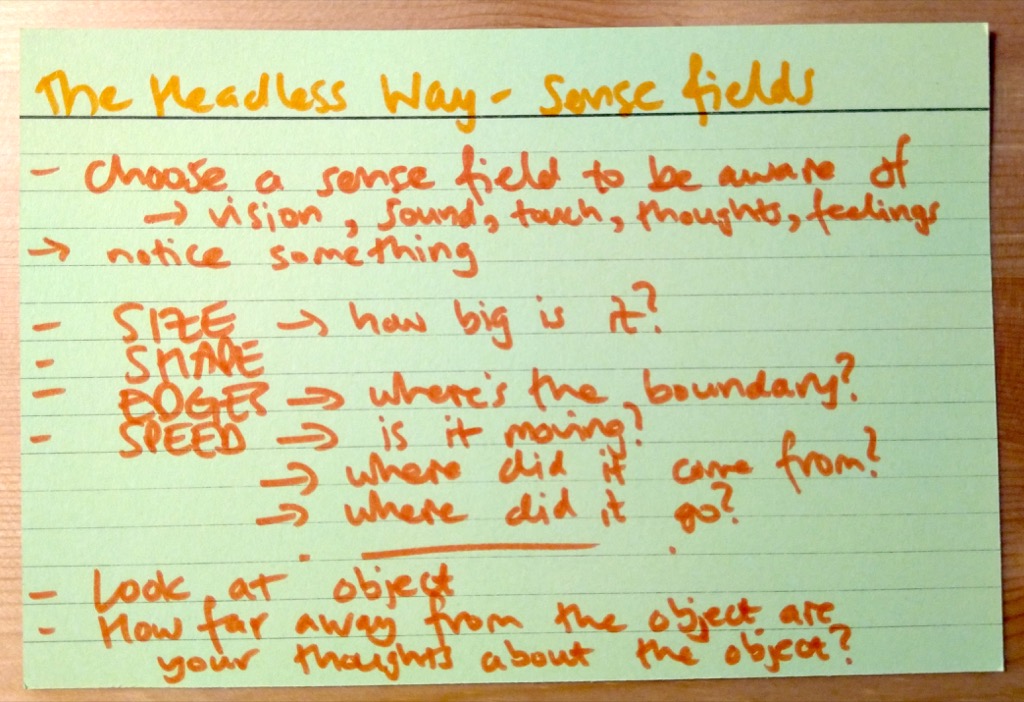 The Headless Way - Sense fields
- Choose a sense field to be aware of
→ vision, sound, touch, thoughts, feelings
→ notice something
- SIZE → how big is it?
- SHAPE
- EDGES → where's the boundary?
- SPEED → is it moving?
→ where did it come from?
→ where did it go?
- Look at object
- How far away from the object are
your thoughts about the object?